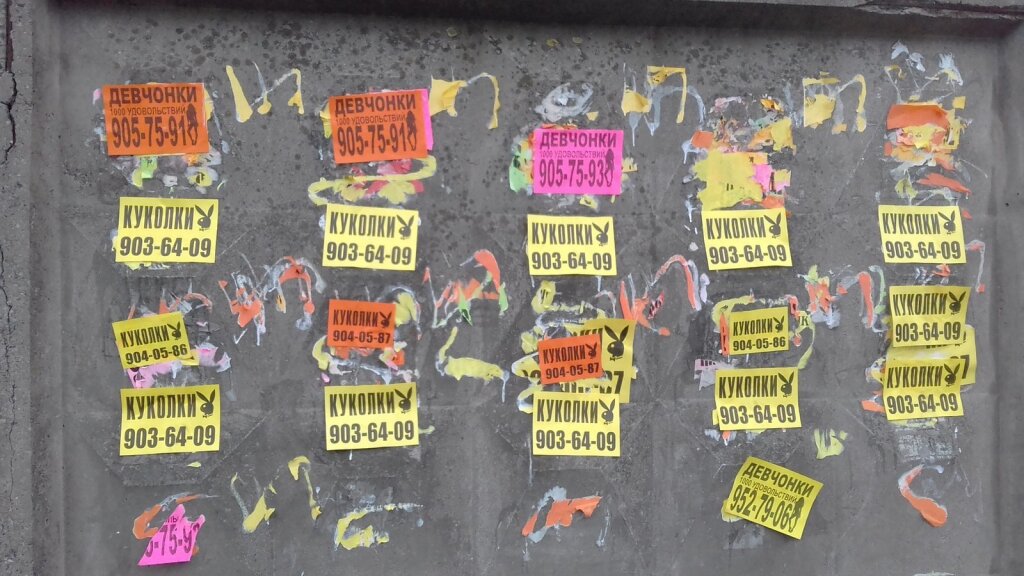 ДЕВЧОНКИ
1000 УДОВОЛЬСТВИЙ
905-75-91
ДЕВЧОНКИ
1000 УДОВОЛЬСТВИЙ
905-75-91
ДЕВЧОНКИ
1000 УДОВОЛЬСТВИЙ
905-75-93
КУКОЛКИ
903-64-09
КУКОЛКИ
903-64-09
КУКОЛКИ
903-64-09
КУКОЛКИ
903-64-09
КУКОЛКИ
903-64-09
КУКОЛКИ
904-05-86
КУКОЛКИ
904-05-87
КУКОЛКИ
904-05-87
КУКОЛКИ
904-05-86
КУКОЛКИ
903-64-09
КУКОЛКИ
903-64-09
КУКОЛКИ
903-64-09
КУКОЛКИ
903-64-09
КУКОЛКИ
903-64-09
КУКОЛКИ
903-64-09
ДЕВЧОНКИ
1000 УДОВОЛЬСТВИЙ
952-79-06